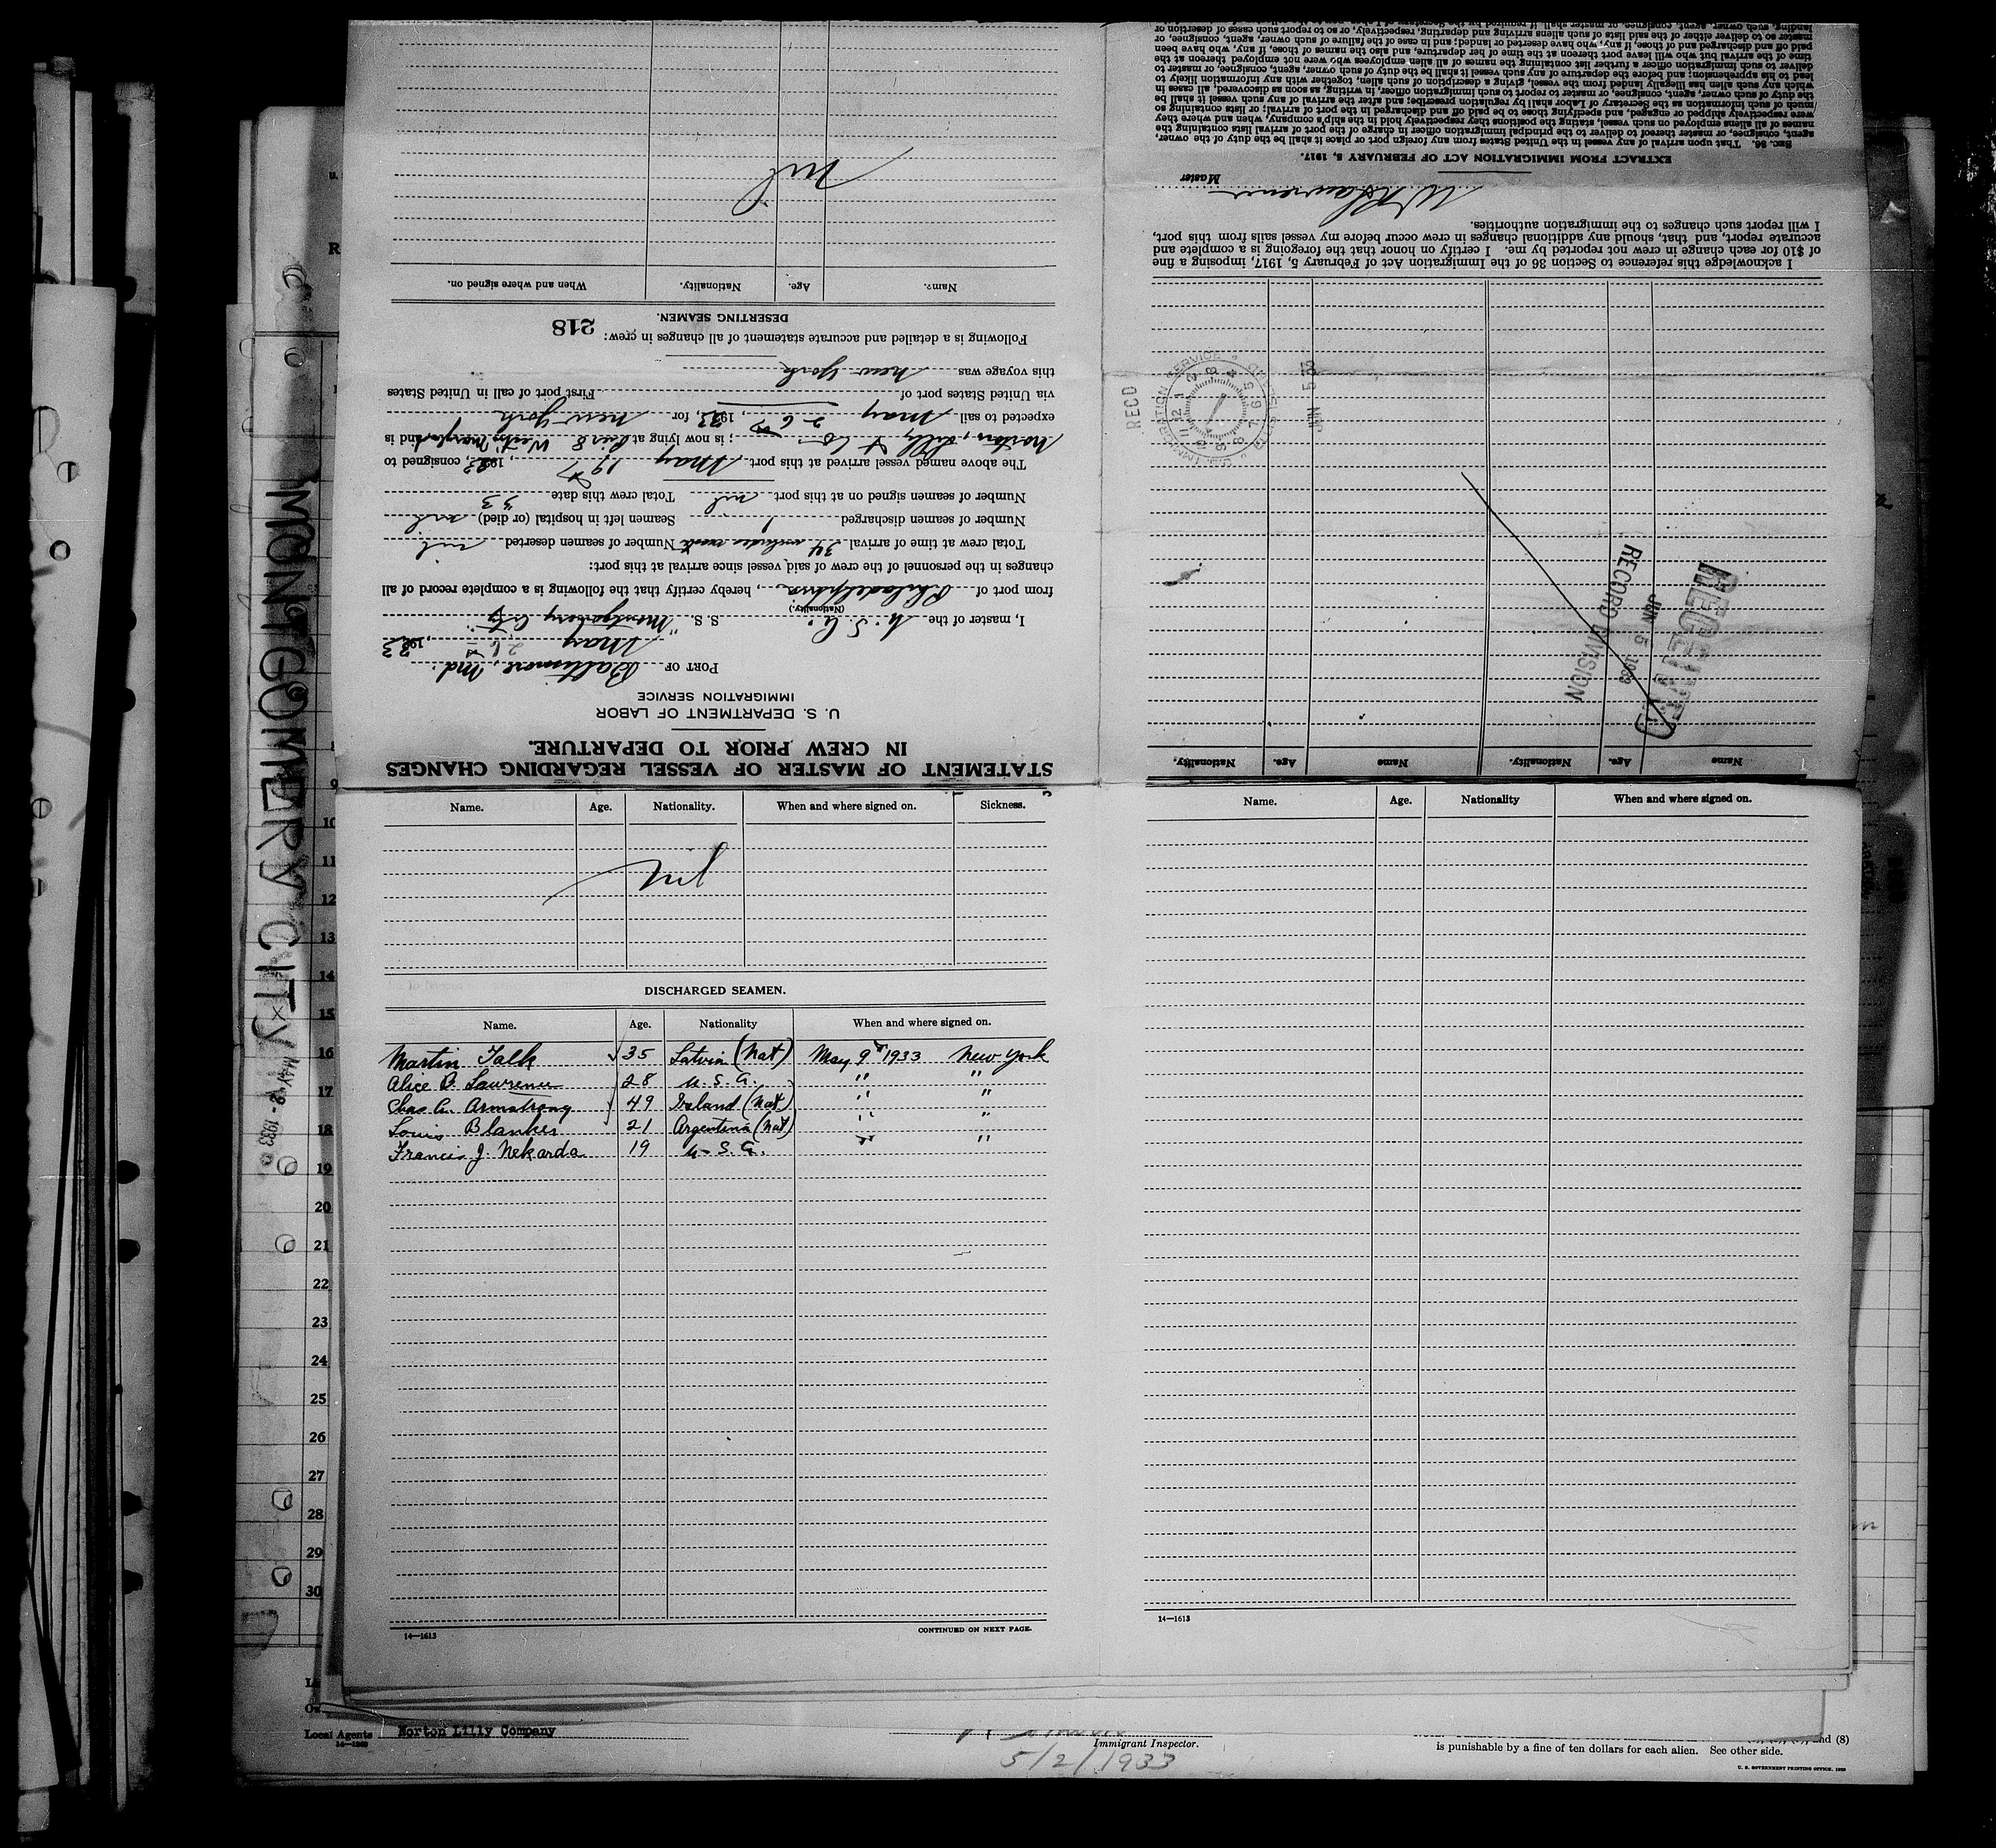 STATEMENT OF MASTER OF VESSEL REGARDING CHANGES
IN CREW PRIOR TO DEPARTURE.
U. S. DEPARTMENT OF LABOR
IMMIGRATION SERVICE
PORT OF Baltimore, Md.
May 26, 1933
I, master of the U.S.A. S. S. "Montgomery City"
(Nationality.)
from port of Philadelphia, hereby certify that the following is a complete record of all
changes in the personnel of the crew of said vessel since arrival at this port:
Total crew at time of arrival 34 includes Number of seamen deserted nil
Number of seamen discharged 1 Seamen left in hospital (or died) nil
Number of seamen signed on at this port nil Total crew this date 33
The above named vessel arrived at this port May 19th, 1933, consigned to
Norton, Lilly & Co; is now lying at Pier 8 and is
expected to sail May 26, 1933, for New York
via United States port of First port of call in United States
this voyage was New York
Following is a detailed and accurate statement of all changes in crew:
218
DESERTING SEAMEN.
Name. Age. Nationality. When and where signed on.
nil
Name Age. Nationality. Name Age. Nationality.
RECEIVED
JUN 5 1933
RECORD DIVISION
RECD
JUN 5 33
U.S. IMMIGRATION SERVICE ELLIS ISLAND
12 1 2 3 4 5 6 7 8 9 11
I acknowledge this reference to Section 36 of the Immigration Act of February 5, 1917, imposing a fine
of $10 for each change in crew not reported by me. I certify on honor that the foregoing is a complete and
accurate report, and that, should any additional changes in crew occur before my vessel sails from this port,
I will report such changes to the immigration authorities.
Lawrence Master
EXTRACT FROM IMMIGRATION ACT OF FEBRUARY 5, 1917.
SEC. 36. That upon arrival of any vessel in the United States from any foreign port or place it shall be the duty of the owner,
agent, consignee, or master thereof to deliver to the principal immigration officer in charge of the port of arrival lists containing the
names of all aliens employed on such vessel, stating the positions they respectively hold in the ship's company, when and where they
were respectively shipped or engaged, and specifying those to be paid off and discharged in the port of arrival; or lists containing so
much of such information as the Secretary of Labor shall by regulation prescribe; and after the arrival of any such vessel it shall be
the duty of such owner, agent, consignee, or master to report to such immigration officer, in writing, as soon as discovered, all cases in
which any such alien has illegally landed from the vessel, giving a description of such alien, together with any information likely to
lead to his apprehension; and before the departure of any such vessel it shall be the duty of such owner, agent, consignee, or master to
deliver to such immigration officer a further list containing the names of all alien employees who were not employed thereon at the
time of the arrival but who will leave port thereon at the time of her departure, and also the names of those, if any, who have been
paid off and discharged and of those, if any, who have deserted or landed; and in case of the failure of such owner, agent, consignee, or
master so to deliver either of the said lists of such aliens arriving and departing, respectively, or so to report such cases of desertion or
Name. Age. Nationality. When and where signed on. Sickness.
nil
DISCHARGED SEAMEN.
Name. Age. Nationality When and where signed on.
Martin Talk 35 Latvia (Nat) May 9th 1933 New York
Alice B. Lawrence 28 U.S.A. " "
Chas A. Armstrong 49 Ireland (Nat) " "
Louis Blanker 21 Argentina (Nat) " "
Francis J. Nekarda 19 U.S.A. " "
14—1613 CONTINUED ON NEXT PAGE.
Name. Age. Nationality When and where signed on.
14—1613
MONTGOMERY CITY
MAY 2 - 1933
9
10
11
12
13
14
15
16
17
18
19
20
21
22
23
24
25
26
27
28
29
30
Local Agents Norton Lilly Company
Immigrant Inspector.
5/2/1933
and (8)
is punishable by a fine of ten dollars for each alien. See other side.
U. S. GOVERNMENT PRINTING OFFICE